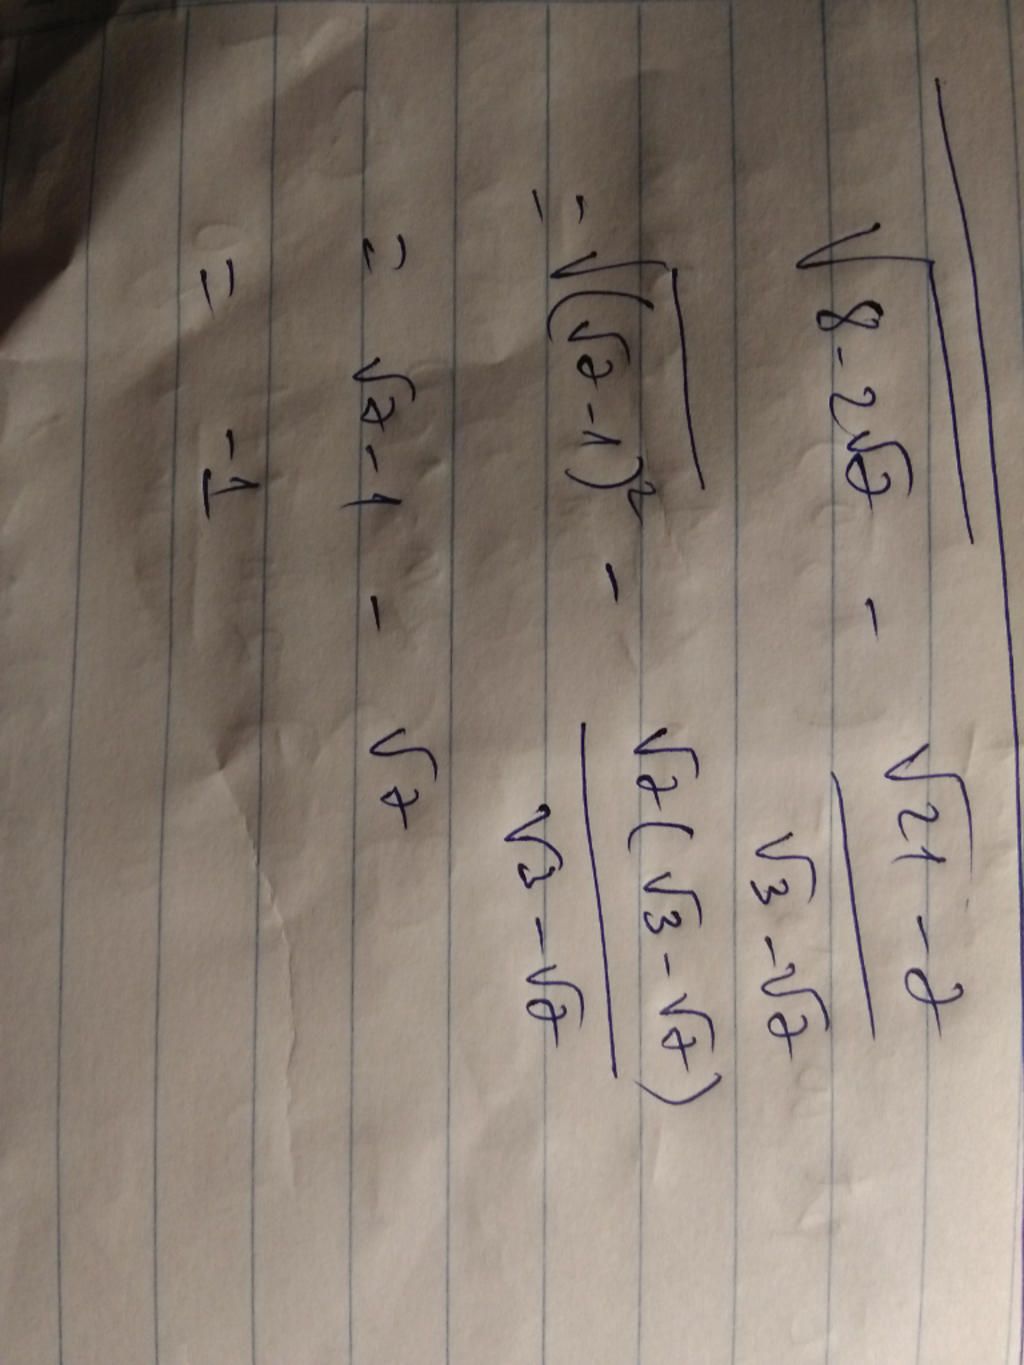 √(8 - 2√7) - (√21 - 7)/(√3 - √7)
= √((√7 - 1)²) - (√7(√3 - √7))/(√3 - √7)
= √7 - 1 - √7
= -1